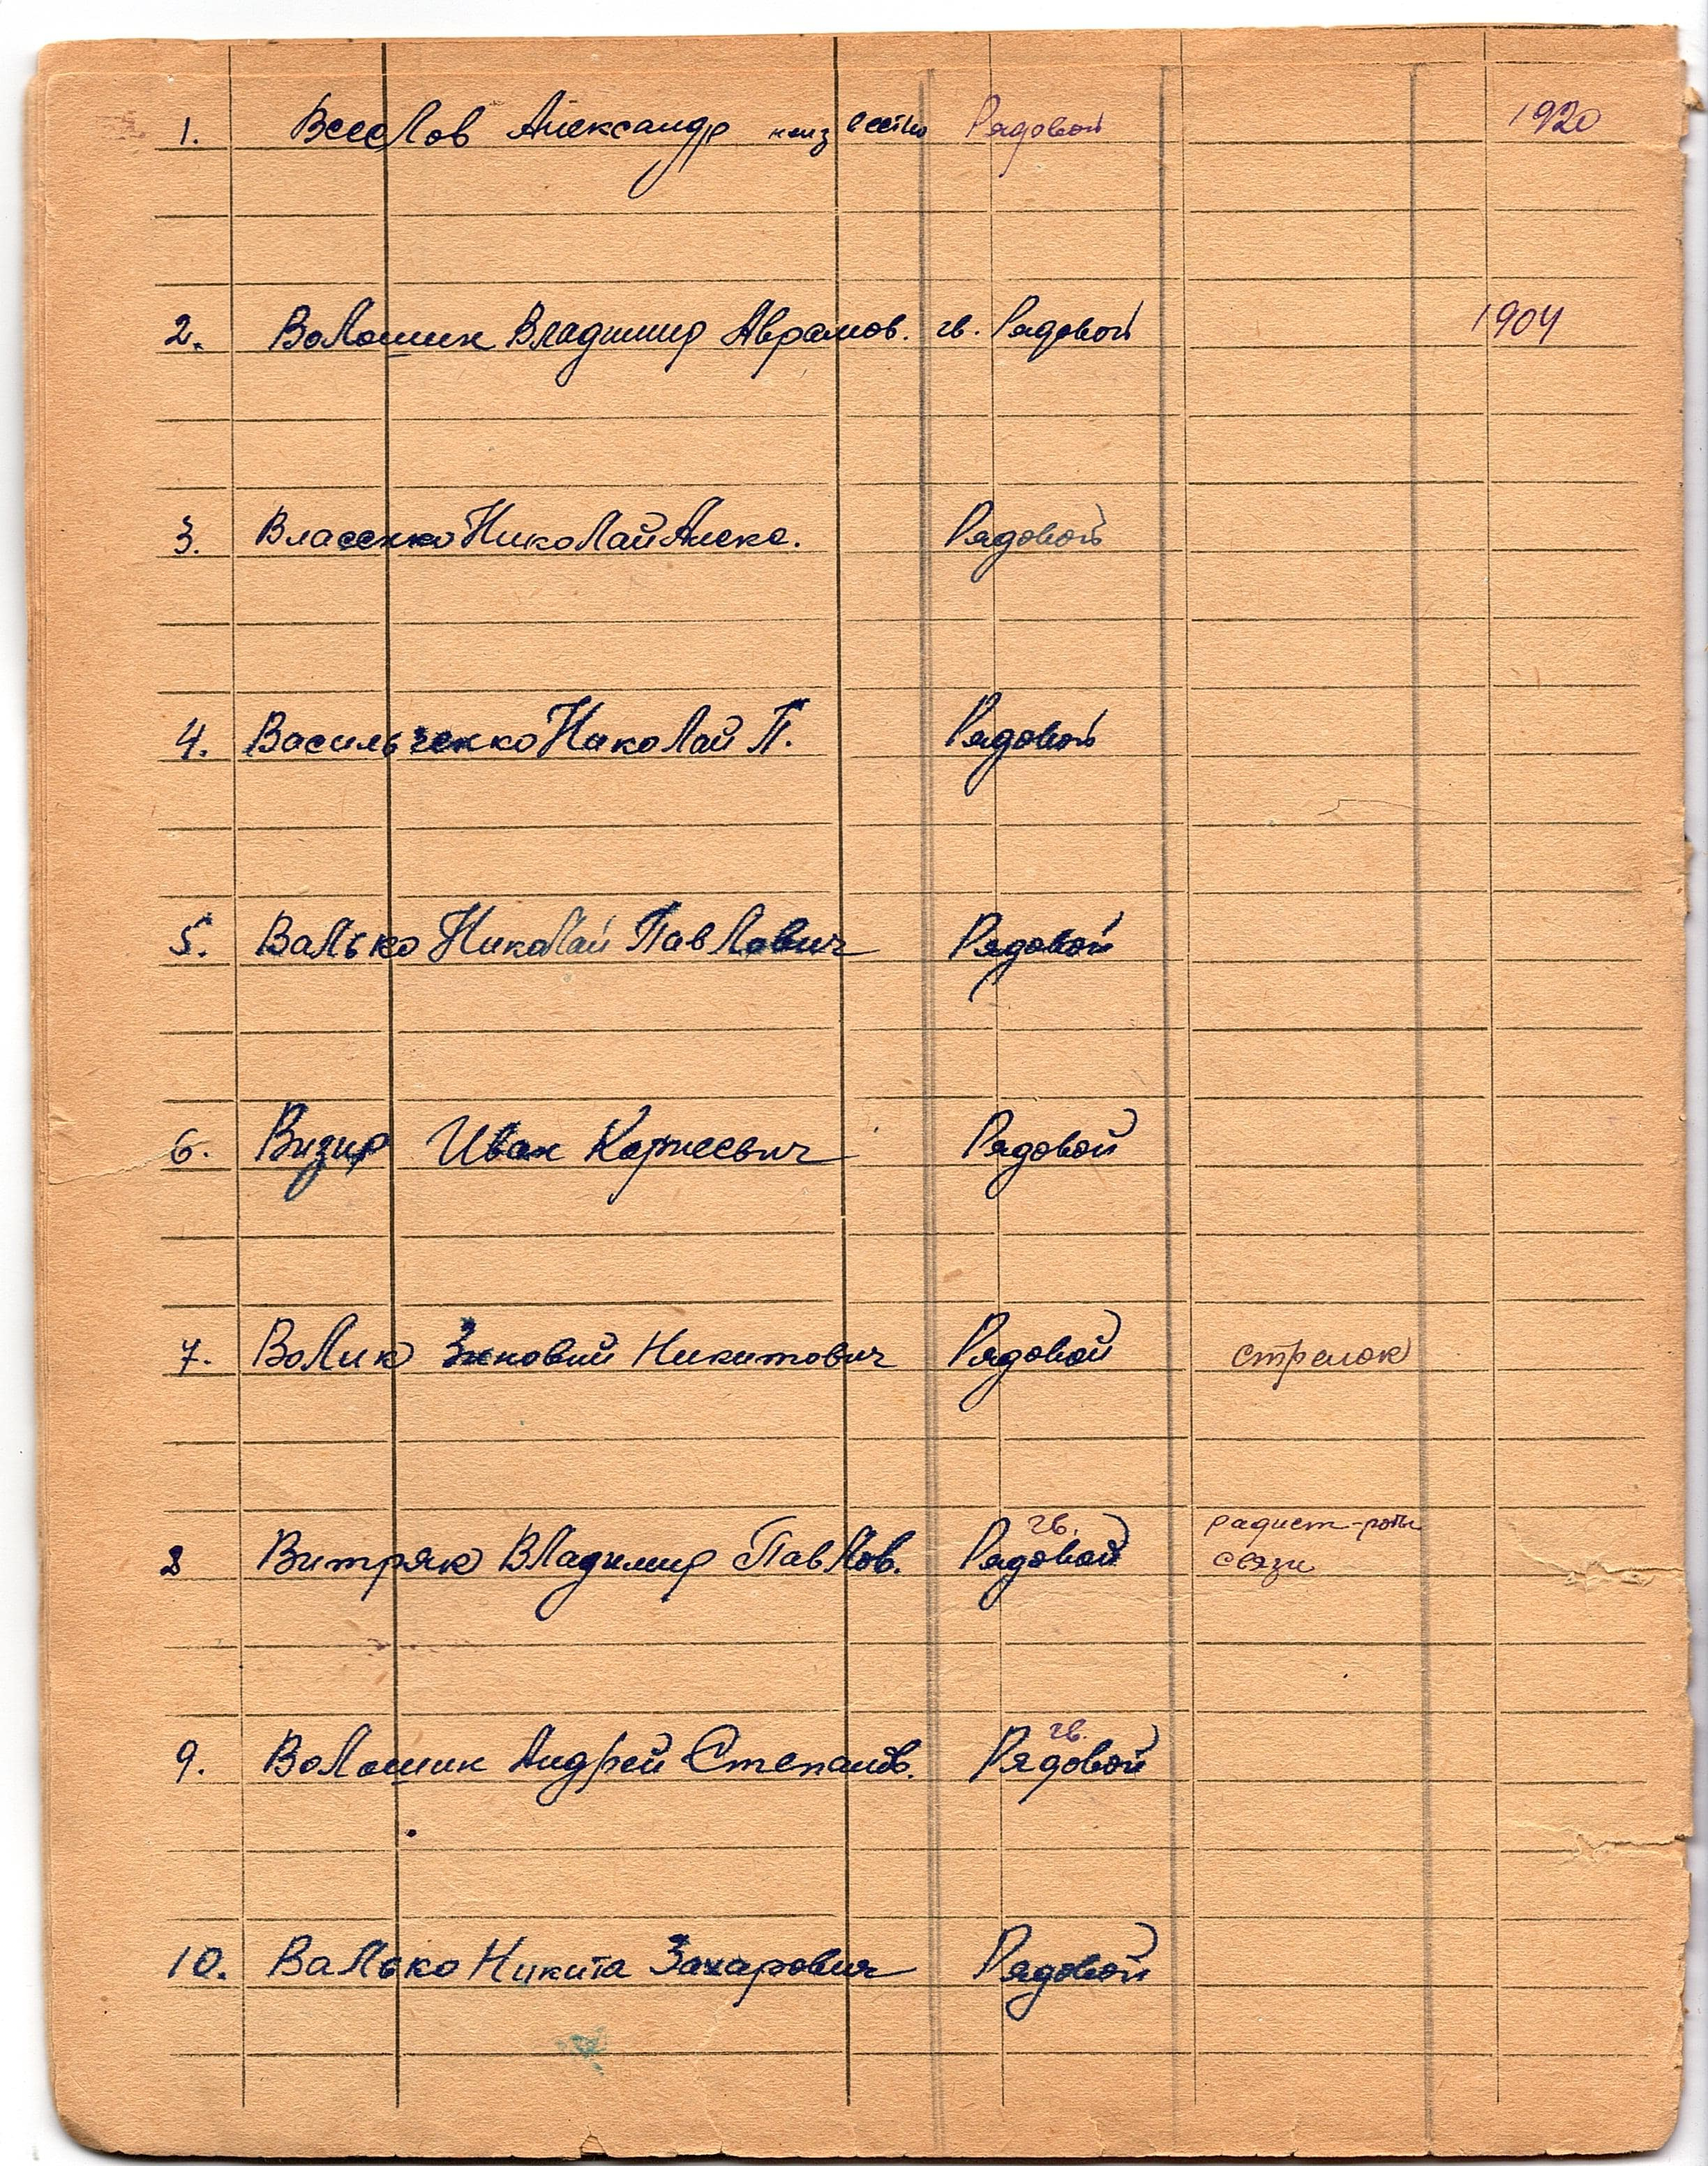 1. Веселов Александр неизвестно Рядовой 1920
2. Волошин Владимир Аврамов. гв. Рядовой 1904
3. Власенко Николай Алекс. Рядовой
4. Васильченко Николай П. Рядовой
5. Валько Николай Павлович Рядовой
6. Визир Иван Корнеевич Рядовой
7. Волик Зиновий Никитович Рядовой стрелок
гв. радист-роты
8 Витряк Владимир Павлов. Рядовой связи
гв.
9. Волошин Андрей Степанов. Рядовой
10. Валько Никита Захарович Рядовой